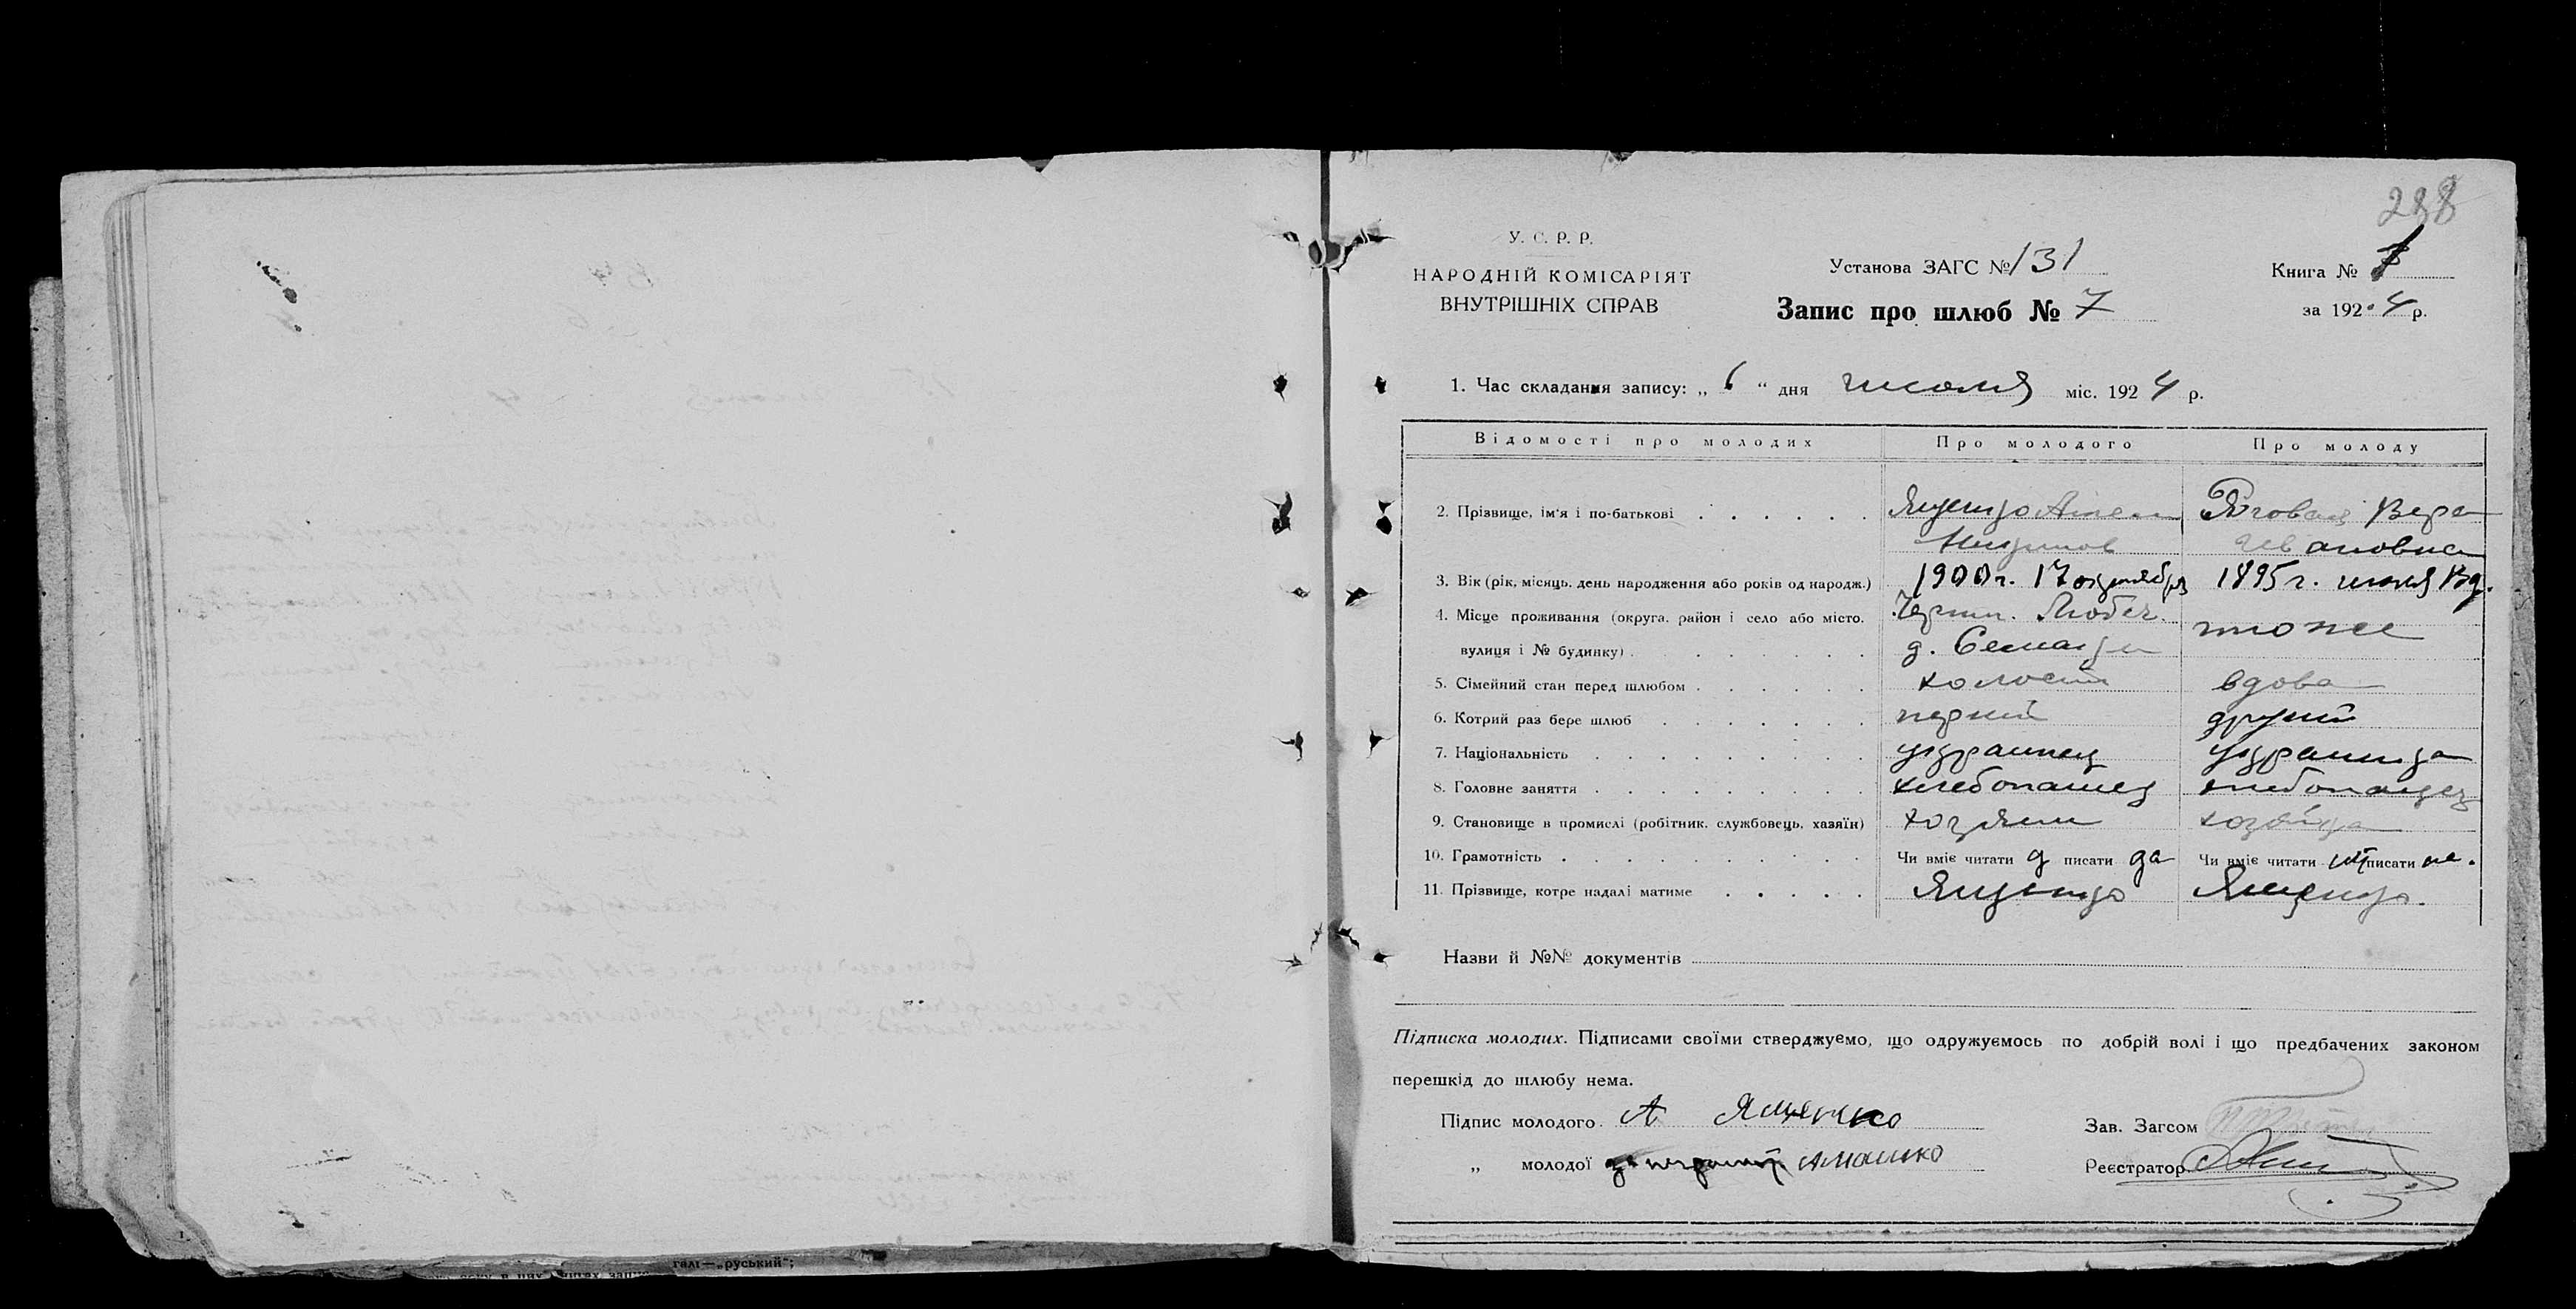 288
У. С. Р. Р.
НАРОДНІЙ КОМІСАРІЯТ
ВНУТРІШНІХ СПРАВ
Установа ЗАГС № 131
Запис про шлюб № 7
Книга №
за 1924 р.
1. Час складання запису: „ 6 “ дня июля міс. 1924 р.
Відомості про молодих Про молодого Про молоду
2. Прізвище, ім'я і по-батькові Ященко Вера
Ивановна
3. Вік (рік, місяць, день народження або років од народж.) 1900 г. 17 октября 1895 г. июня
4. Місце проживання (округа, район і село або місто, Черниг. Любеч. тоже
вулиця і № будинку) д. Семаки
5. Сімейний стан перед шлюбом холост вдова
6. Котрий раз бере шлюб первий другий
7. Національність украинец украинка
8. Головне заняття хлебопашец хлебопашец
9. Становище в промислі (робітник, службовець, хазяїн) хозяин хозяйка
10. Грамотність Чи вміє читати д писати да Чи вміє читати писати не.
11. Прізвище, котре надалі матиме Ященко Ященко.
Назви й №№ документів
Підписка молодих. Підписами своїми стверджуємо, що одружуємось по добрій волі і що предбачених законом
перешкід до шлюбу нема.
Підпис молодого А Ященко
Зав. Загсом
„ молодої
Реєстратор
галі—„руський";